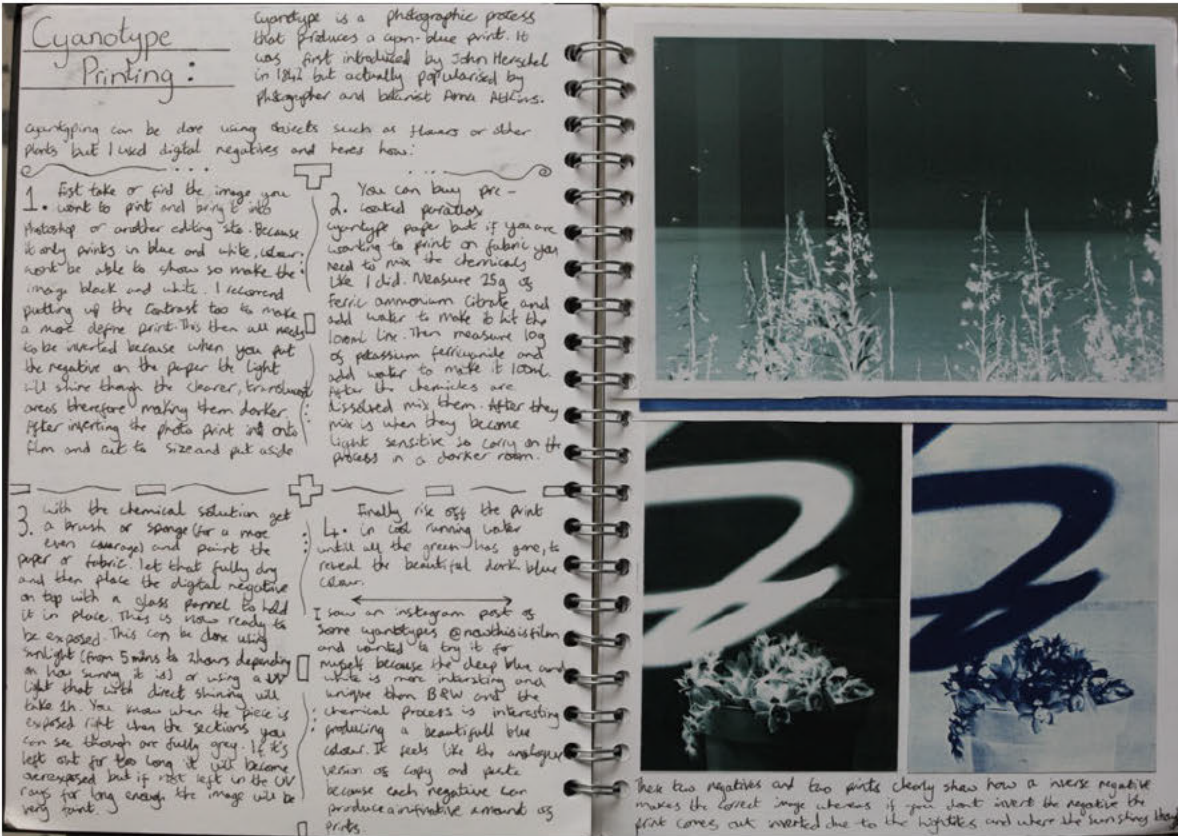 Cyanotype
Printing:
Cyanotype is a photographic process
that produces a cyan-blue print. It
was first introduced by John Herschel
in 1842 but actually popularised by
photographer and botanist Anna Atkins.
cyanotyping can be done using objects such as flowers or other
plants but I used digital negatives and heres how:
1. First take or find the image you
want to print and bring it into
Photoshop or another editing site. Because
it only prints in blue and white, colour
wont be able to show so make the
image black and white. I recomend
putting up the contrast too to make
a more define print. This then will needs
to be inverted because when you put
the negative on the paper the light
will shine though the clearer, translucent
areas therefore making them darker.
After inverting the photo print ink onto
film and cut to size and put aside
2. You can buy pre-
coated
cyanotype paper but if you are
wanting to print on fabric you
need to mix the chemicals
like I did. Measure 25g of
Ferric ammonium citrate and
add water to make it hit the
100ml line. Then measure 10g
of potassium ferricyanide and
add water to make it 100ml.
After the chemicles are
dissolved mix them. After they
mix is when they become
light sensitive so carry on the
process in a darker room.
3. with the chemical solution get
a brush or sponge (for a more
even coverage) and paint the
paper or fabric. Let that fully dry
and then place the digital negative
on top with a glass pannel to hold
it in place. This is now ready to
be exposed. This can be done using
sunlight (from 5 mins to 2 hours depending
on how sunny it is) or using a UV
light that with direct shining will
take 1h. You know when the piece is
exposed right when the sections you
can see though are fully grey. If it's
left out for too long it will become
overexposed but if not left in the UV
rays for long enough the image will be
very faint.
4. Finally rise off the print
in cool running water
untill all the green has gone, to
reveal the beautiful dark blue
colour.
I saw an instagram post of
some cyanotypes @nowthisisfilm
and wanted to try it for
myself because the deep blue and
white is more intersting and
unique than B&W and the
chemical process is interesting
producing a beautifull blue
colour. It feels like the analogue
version of copy and paste
because each negative can
produce a infinative amount of
prints.
These two negatives and two prints clearly show how a inverse negative
makes the correct image whereas if you dont invert the negative the
print comes out inverted due to the and where the sun shines though